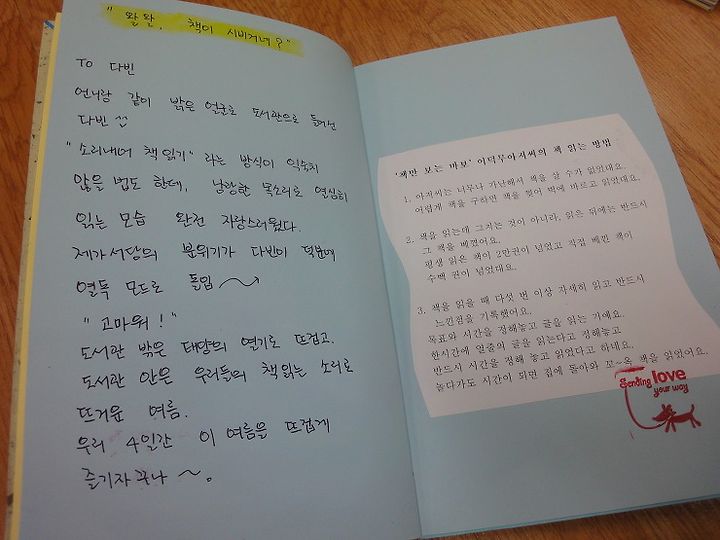 "왈왈, 책이 시비거네?"
To 다빈
언니랑 같이 밝은 얼굴로 도서관으로 들어선
다빈 ^^
"소리내어 책 읽기" 라는 방식이 익숙치
않을 법도 한데, 낭랑한 목소리로 열심히
읽는 모습 완전 자랑스러웠다.
제가서당의 분위기가 다빈이 덕분에
열독 모드로 돌입 ~
"고마워!"
도서관 밖은 태양의 열기로 뜨겁고,
도서관 안은 우리들의 책읽는 소리로
뜨거운 여름.
우리 4일간 이 여름을 뜨겁게
즐기자꾸나 ~.
'책만 보는 바보' 이덕무아저씨의 책 읽는 방법
1. 아저씨는 너무나 가난해서 책을 살 수가 없었대요.
어렵게 책을 구하면 책을 찢어 벽에 바르고 읽었대요.
2. 책을 읽는데 그치는 것이 아니라, 읽은 뒤에는 반드시
그 책을 베꼈어요.
평생 읽은 책이 2만권이 넘었고 직접 베낀 책이
수백 권이 넘었대요.
3. 책을 읽을 때 다섯 번 이상 자세히 읽고 반드시
느낀점을 기록했어요.
목표와 시간을 정해놓고 글을 읽는 거예요.
한시간에 열줄의 글을 읽는다고 정해놓고
반드시 시간을 정해 놓고 읽었다고 하네요.
놀다가도 시간이 되면 집에 돌아와 꼬~옥 책을 읽었어요.
Sending love
your way